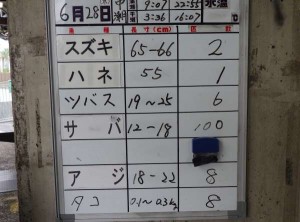 6月28日 中潮 9:07 22:55 水温
3:26 16:07
魚種 長さ(cm) 匹数
スズキ 65-66 2
ハネ 55 1
ツバス 19~25 6
サバ 12-18 100
アジ 18-22 8
タコ 0.1~0.3kg 8